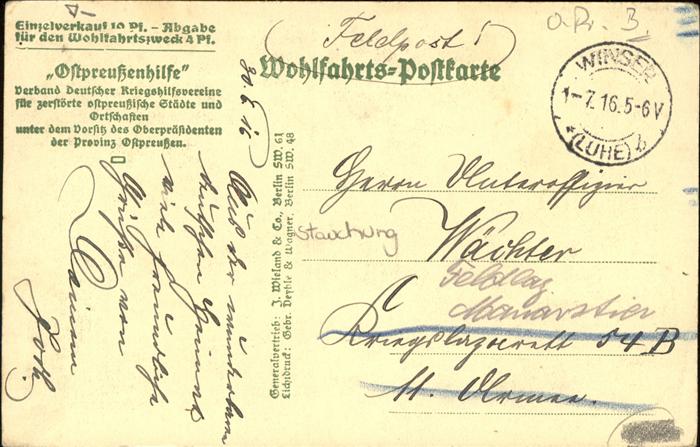 Einzelverkauf 10 Pf. – Abgabe
für den Wohlfahrtszweck 4 Pf.
„Ostpreußenhilfe"
Verband Deutscher Kriegshilfsvereine
für zerstörte ostpreußische Städte und
Ortschaften
unter dem Vorsitz des Oberpräsidenten
der Provinz Ostpreußen.
Feldpost!
Wohlfahrts-Postkarte
WINSEN
1–7.16.5-6V
* (LUHE) b
30.6.16
Aus der
Heimat
viele freundliche
Grüße von
Generalvertrieb: J. Wieland & Co., Berlin SW. 61
Lichtdruck: Gebr. Deyhle & Wagner, Berlin SW. 48
Herrn Unteroffizier
Stauchung
Wächter
Feldlaz
Kriegslazarett 54 B
11. Armee.